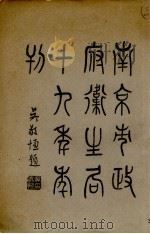 南京市政
府衛生局
十九年年
刊
吳敬恆題
www.mtoou.info